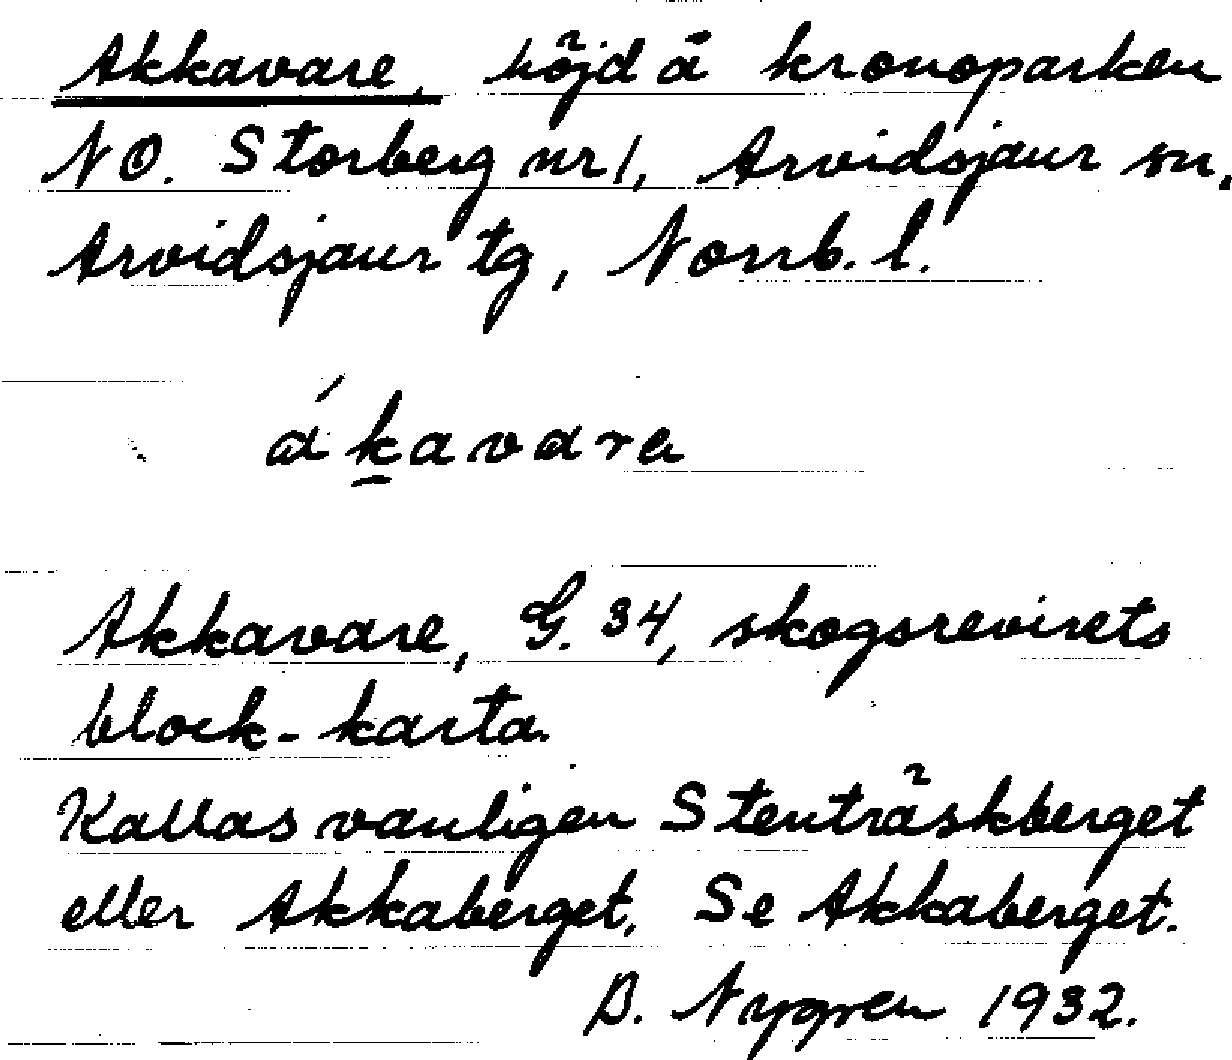 Akkavare, höjd å kronoparken
NO. Storberg nr 1, Arvidsjaur sn.
Arvidsjaur tg, Norrb. l.
ákavara
Akkavare, G. 34, skogsrevirets
block-karta.
Kallas vanligen Stenträskberget
eller Akkaberget. Se Akkaberget.
B. Nygren 1932.